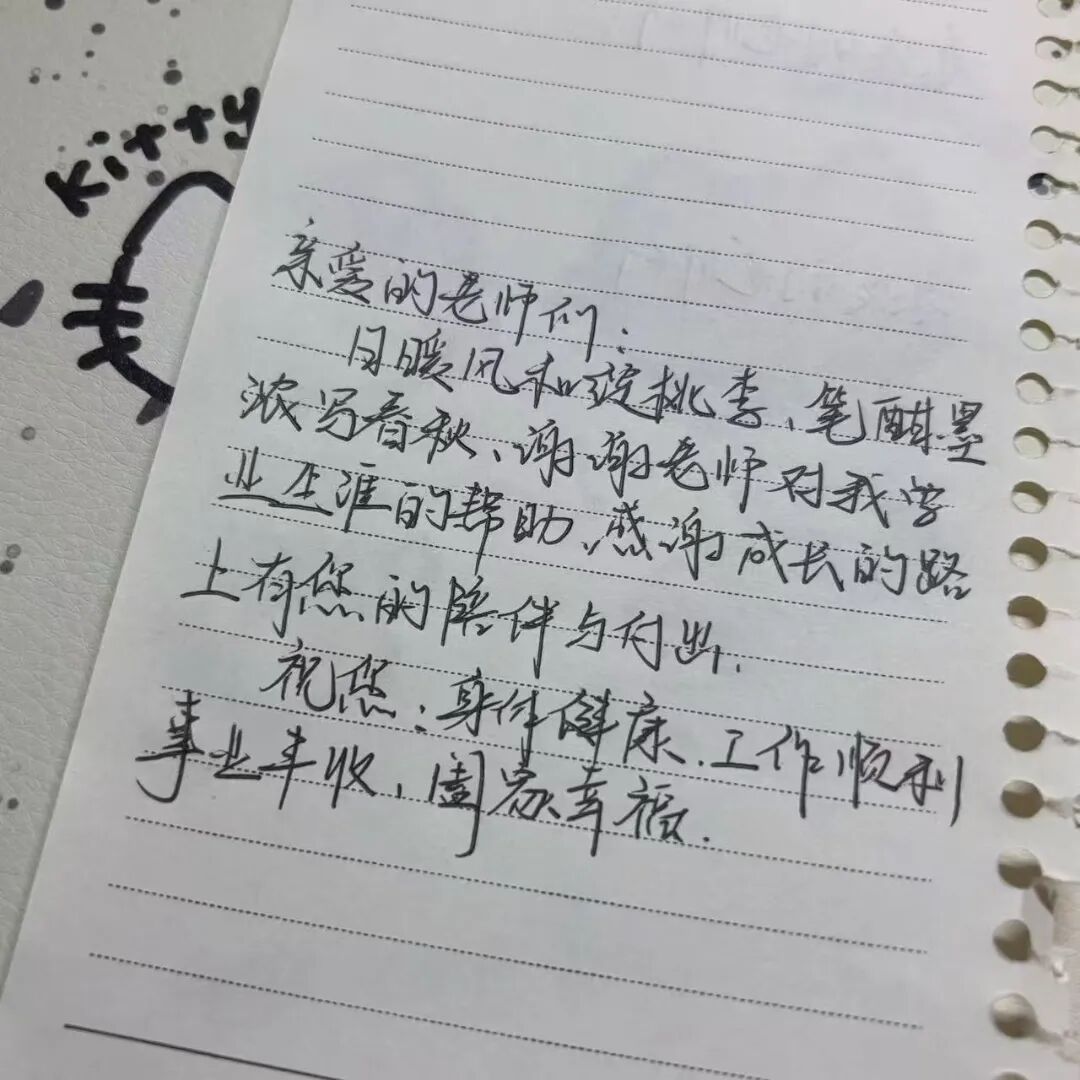 Kitty
亲爱的老师们:
日暖风和绽桃李、笔酣墨
浓写春秋、谢谢老师对我学
业生涯的帮助、感谢成长的路
上有您的陪伴与付出.
祝您:身体健康、工作顺利
事业丰收、阖家幸福.